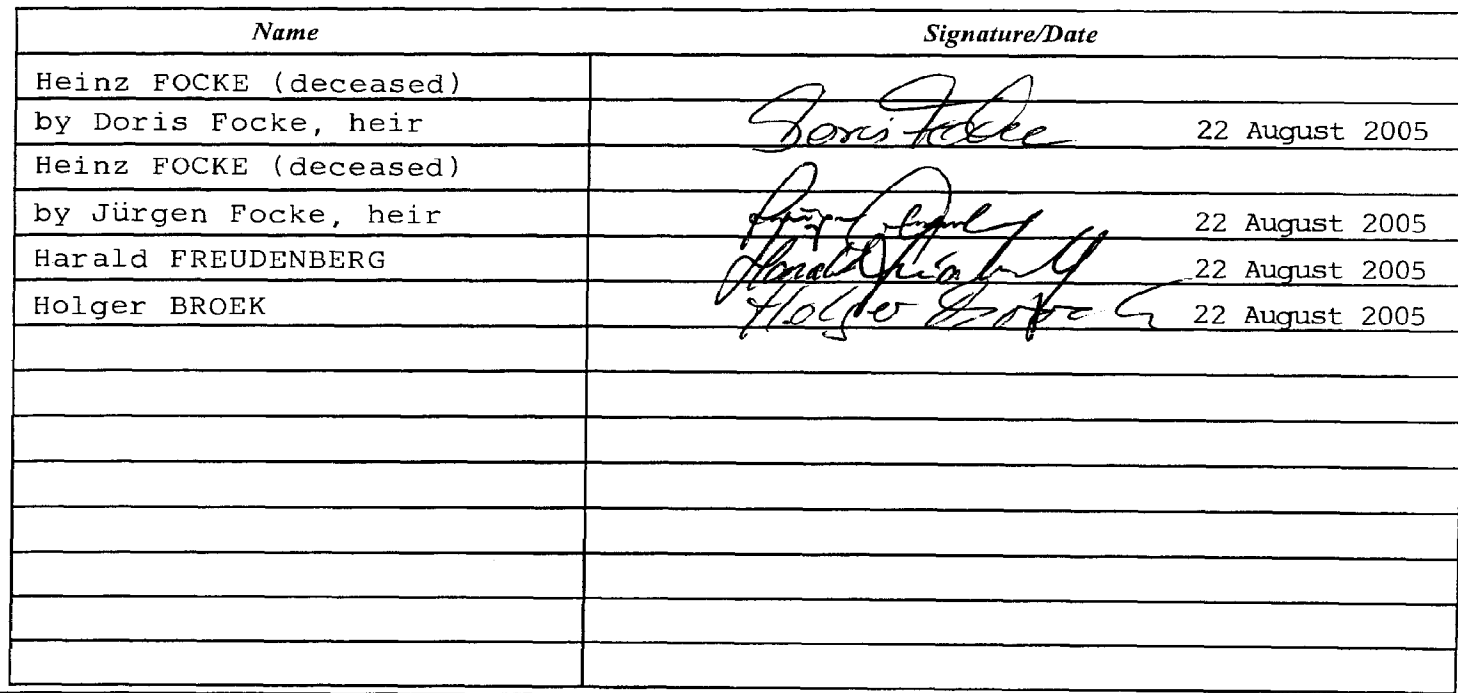 Name Signature/Date
Heinz FOCKE (deceased)
by Doris Focke, heir Doris Focke 22 August 2005
Heinz FOCKE (deceased)
by Jürgen Focke, heir 22 August 2005
Harald FREUDENBERG Harald 22 August 2005
Holger BROEK Holger 22 August 2005